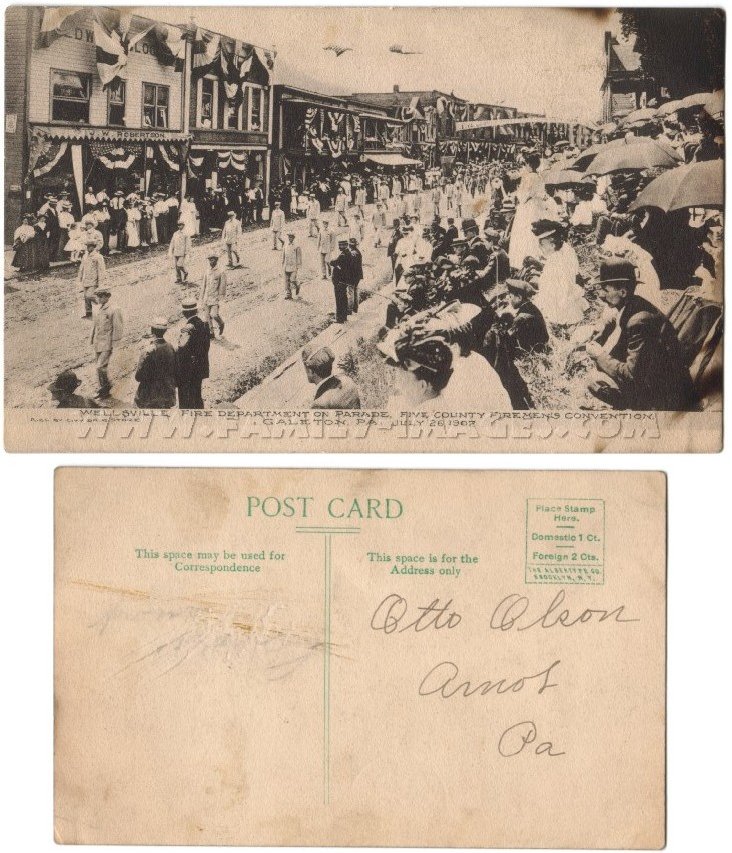 W. ROBERTSON
WELLSVILLE FIRE DEPARTMENT ON PARADE. FIVE COUNTY FIREMENS CONVENTION.
GALETON, PA. JULY 26, 1907
PUB. BY
WWW.FAMILY-IMAGES.COM
POST CARD
This space may be used for
Correspondence
This space is for the
Address only
Place Stamp
Here.
Domestic 1 Ct.
Foreign 2 Cts.
THE ALBERTYPE CO.
BROOKLYN, N.Y.
from
Otto Olson
Arnot
Pa